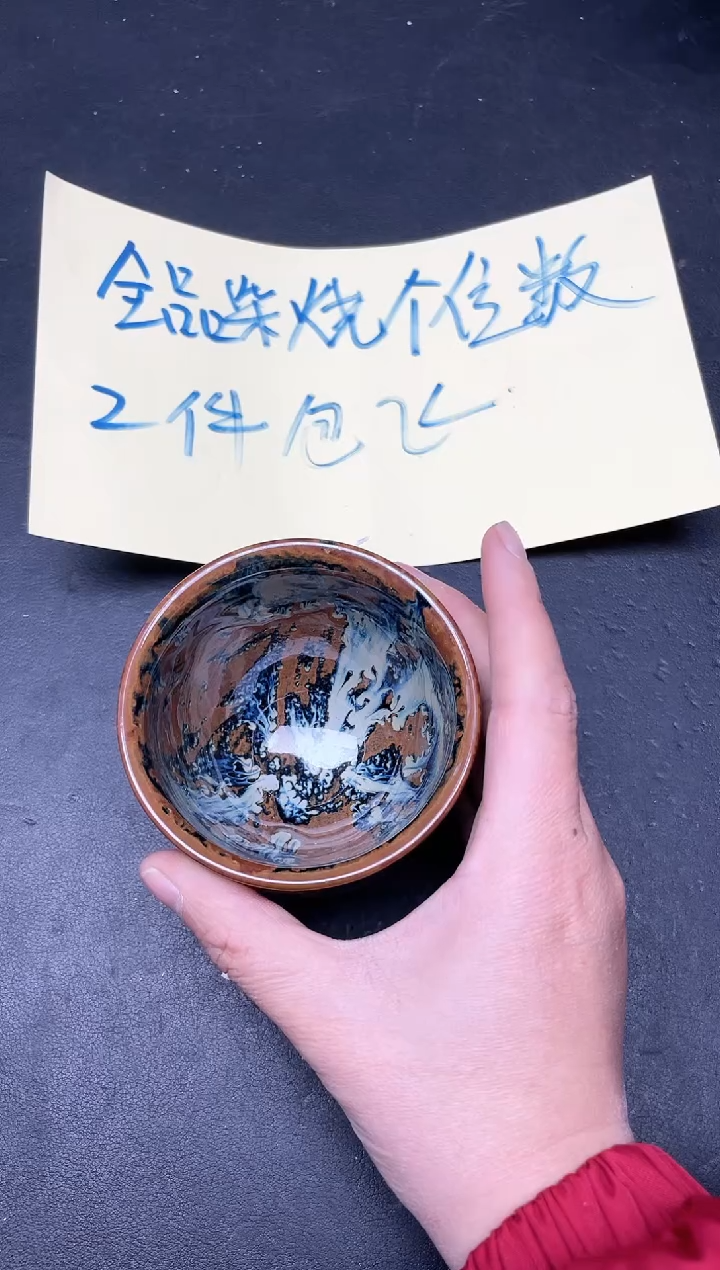 全品柴烧个位数
2件包飞